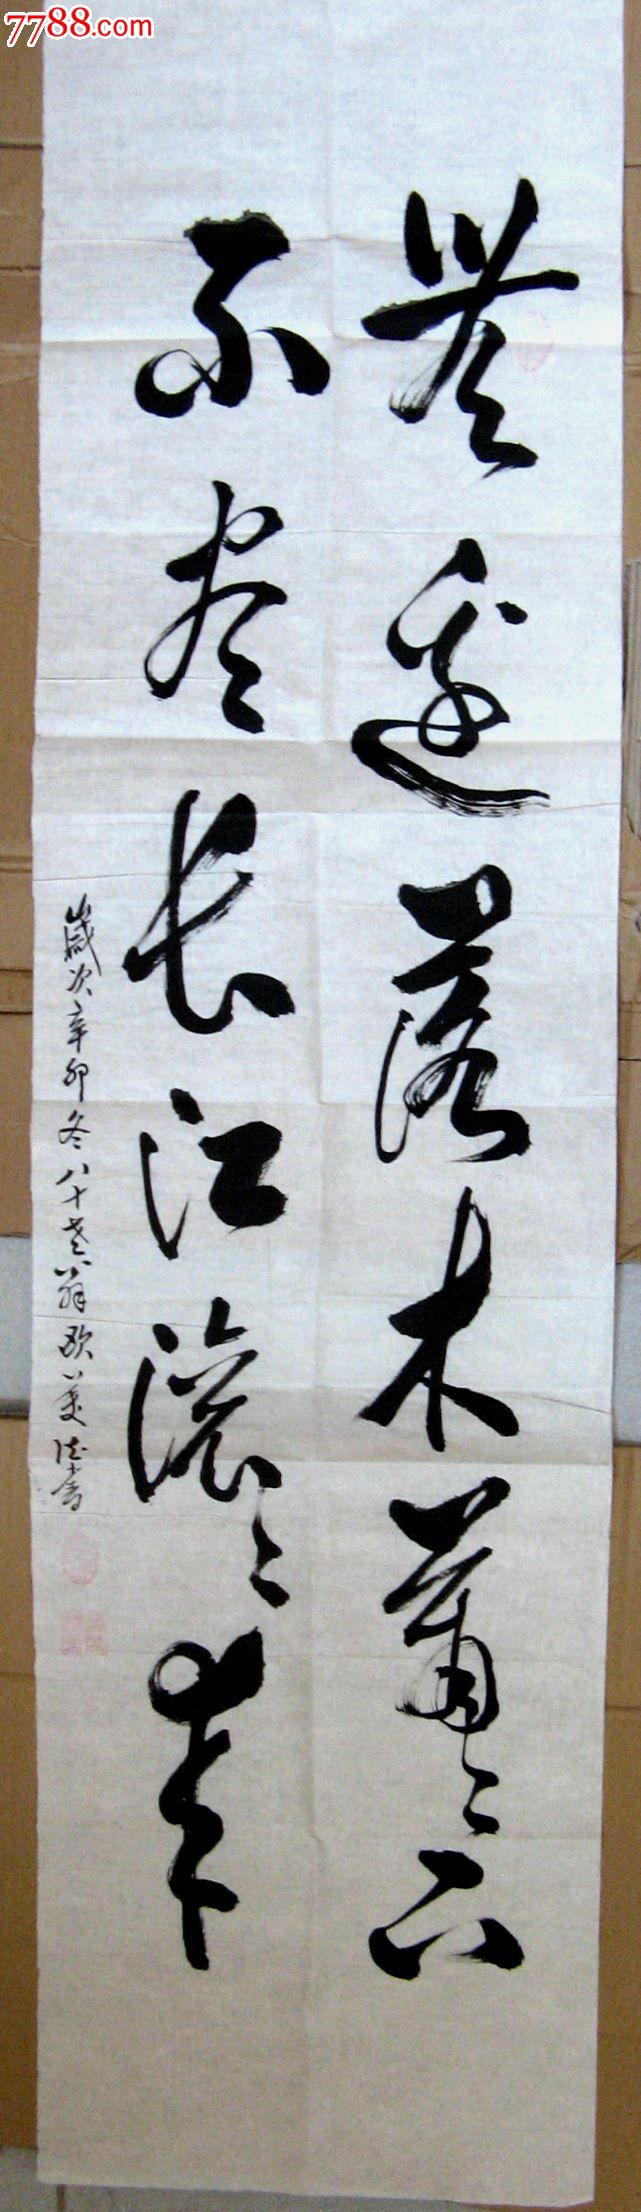 7788.com
無邊落木蕭〻下
不盡長江滾〻來
歲次辛卯冬八十老翁歐美德書